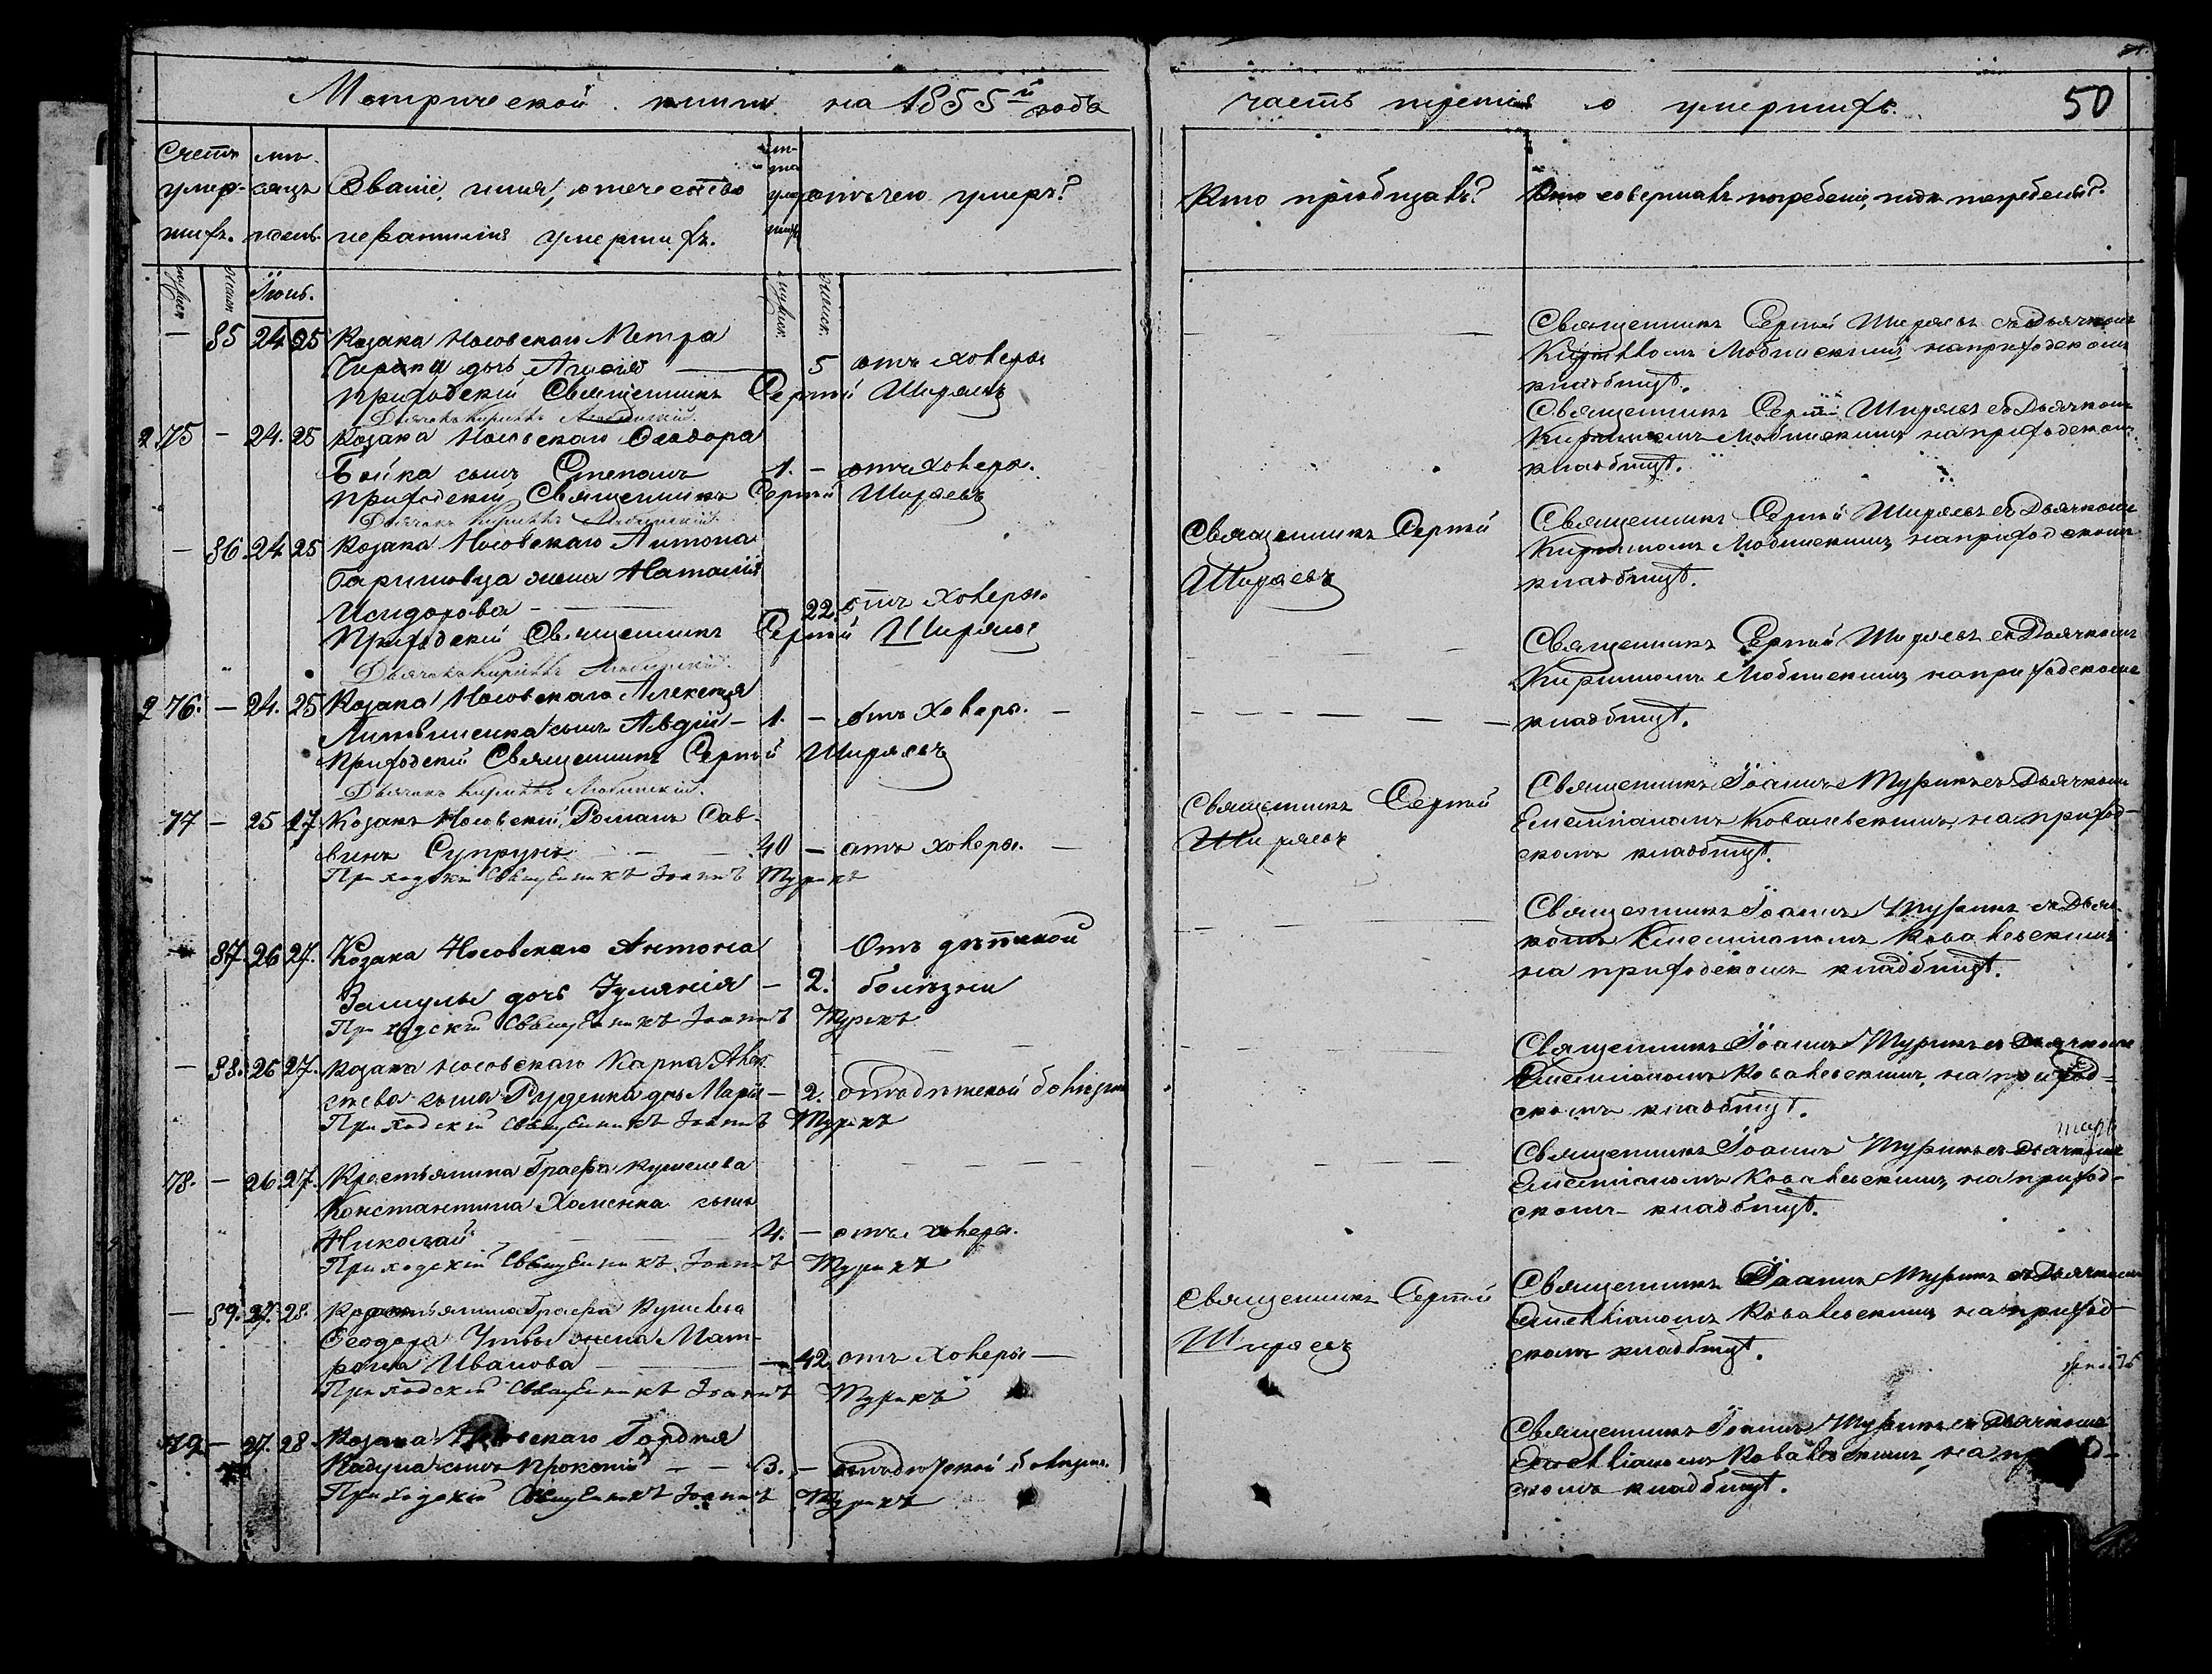 Метрической книги на 1855й годъ
часть третія о умершихъ.
50
Счетъ умер-шихъ.
мѣ-сяцъ и день.
Званіе, имя, отечество и фамилія умершихъ.
лѣ-та умер-шихъ
отъ чего умеръ?
Кто пріобщалъ?
Кто совершалъ погребеніе, и гдѣ погребены?
Іюнь.
— 85 24 25 Козака Носовскаго Петра
дочь 5 отъ холеры
Приходскій Священникъ Сергій Ширяевъ
Дьячокъ Кириллъ Любинскій.
Священникъ Сергій Ширяевъ съ Дьячкомъ
Кирилломъ Любинскимъ на приходскомъ
кладбищѣ.
75 — 24. 25 Козака Носовскаго Ѳеодора
Бойка сынъ Степанъ 1. — отъ холеры.
Приходскій Священникъ Сергій Ширяевъ
Дьячокъ Кириллъ Любинскій.
Священникъ Сергій Ширяевъ съ Дьячкомъ
Кирилломъ Любинскимъ на приходскомъ
кладбищѣ.
— 86. 24 25 Козака Носовскаго Антона
жена Наталія
Исидорова — 22. отъ холеры.
Приходскій Священникъ Сергій Ширяевъ
Дьячокъ Кириллъ Любинскій.
Священникъ Сергій
Ширяевъ
Священникъ Сергій Ширяевъ съ Дьячкомъ
Кирилломъ Любинскимъ на приходскомъ
кладбищѣ.
76. — 24. 25 Козака Носовскаго Алексѣя
Литвиненка сынъ Авдій — 1. — отъ холеры. —
Приходскій Священникъ Сергій Ширяевъ
Дьячокъ Кириллъ Любинскій.
Священникъ Сергій Ширяевъ съ Дьячкомъ
Кирилломъ Любинскимъ на приходскомъ
кладбищѣ.
77 — 25 27 Козакъ Носовскій Романъ Сав-
винъ Супрунъ — 40 — отъ холеры. —
Приходскій Священникъ Іоаннъ Турикъ
Священникъ Сергій
Ширяевъ
Священникъ Іоаннъ Турикъ съ Дьячкомъ
Емелліаномъ Ковалевскимъ, на приход-
скомъ кладбищѣ.
87. 26 27. Козака Носовскаго Антона Отъ дѣтской
Замулы дочь Іуліанія — 2. болѣзни
Приходскій Священникъ Іоаннъ Турикъ
Священникъ Іоаннъ Турикъ съ Дьяч-
комъ Емелліаномъ Ковалевскимъ
на приходскомъ кладбищѣ.
— 88. 26 27. Козака Носовскаго Карпа
сына Руденка дочь Марія — 2. отъ дѣтской болѣзни
Приходскій Священникъ Іоаннъ Турикъ
Священникъ Іоаннъ Турикъ съ Дьячкомъ
Емелліаномъ Ковалевскимъ, на приход-
скомъ кладбищѣ.
78. — 26. 27. Крестьянина Графа Кушелева
Константина Хоменка сынъ
Николай — 4. — отъ холеры.
Приходскій Священникъ Іоаннъ Турикъ
Священникъ Іоаннъ Турикъ съ Дьячкомъ
Емелліаномъ Ковалевскимъ, на приход-
скомъ кладбищѣ.
— 89. 27. 28. Крестьянина Графа Кушелева
Ѳеодора жена Мат-
рона Иванова — 42 отъ холеры —
Приходскій Священникъ Іоаннъ Турикъ
Священникъ Сергій
Ширяевъ
Священникъ Іоаннъ Турикъ съ Дьячкомъ
Емелліаномъ Ковалевскимъ на приход-
скомъ кладбищѣ.
79 — 27. 28. Козака Носовскаго Гордія
сынъ Прокопій — 3. — отъ дѣтской болѣзни.
Приходскій Священникъ Іоаннъ Турикъ
Священникъ Іоаннъ Турикъ съ Дьячкомъ
Емелліаномъ Ковалевскимъ, на приход-
скомъ кладбищѣ.